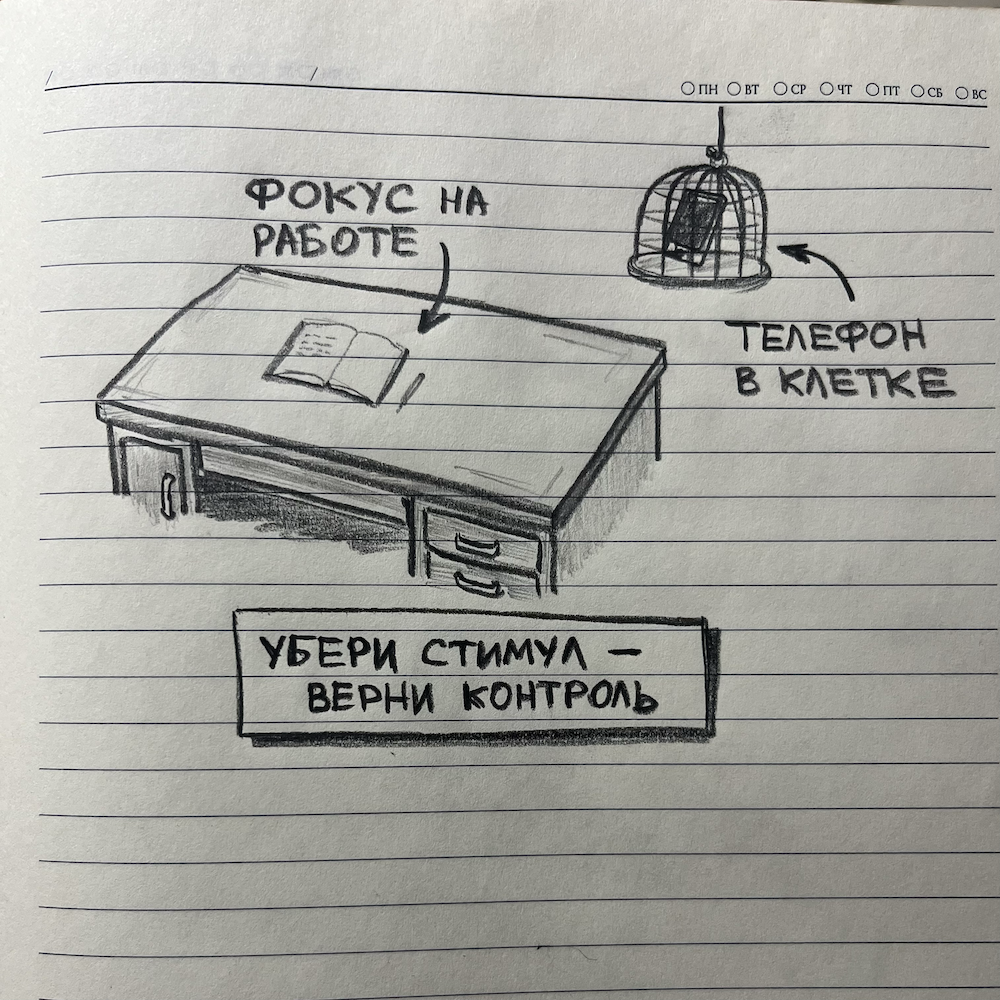 ПН ВТ СР ЧТ ПТ СБ ВС
ФОКУС НА
РАБОТЕ
ТЕЛЕФОН
В КЛЕТКЕ
УБЕРИ СТИМУЛ —
ВЕРНИ КОНТРОЛЬ